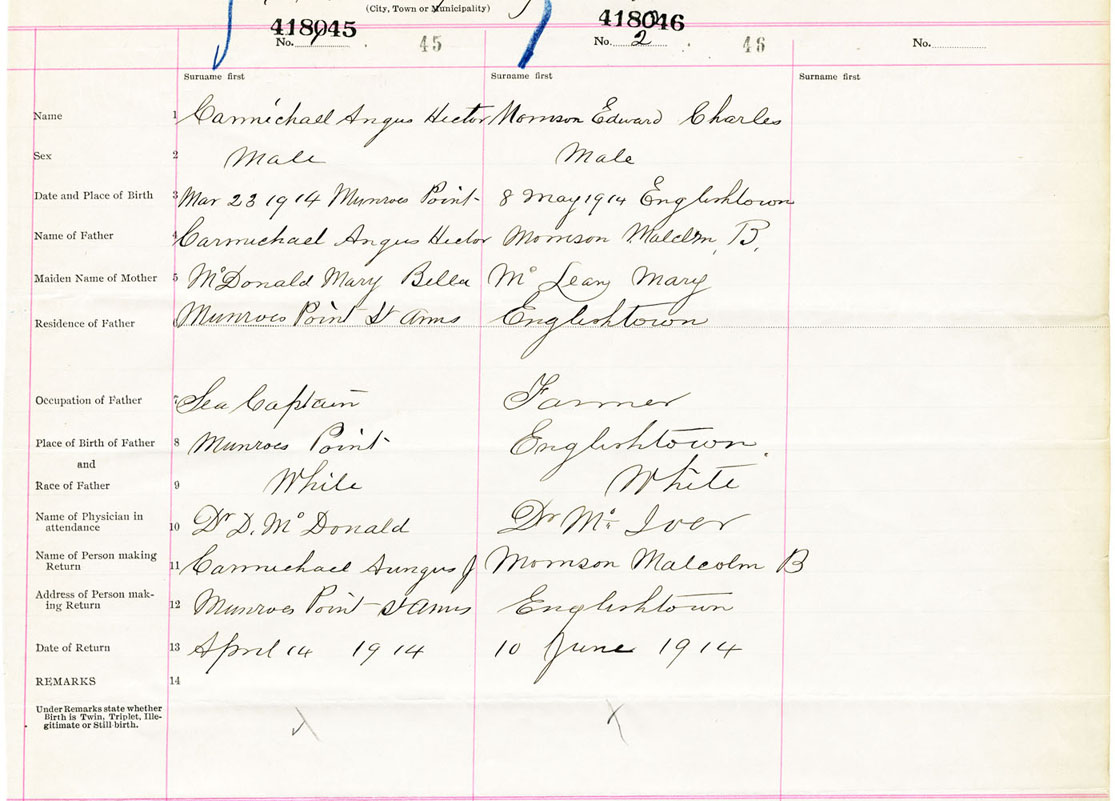 (City, Town or Municipality)
418045 418046
No. 1 45 No. 2 46 No.
Surname first Surname first Surname first
Name 1 Carmichael Angus Hector Morrison Edward Charles
Sex 2 Male Male
Date and Place of Birth 3 Mar 23 1914 Munroes Point 8 May 1914 Englishtown
Name of Father 4 Carmichael Angus Hector Morrison Malclm, B,
Maiden Name of Mother 5 McDonald Mary Bella Mc Lean Mary
Residence of Father 6 Munroes Point St Anns Englishtown
Occupation of Father 7 Sea Captain Farmer
Place of Birth of Father 8 Munroes Point Englishtown.
and
Race of Father 9 White White
Name of Physician in
attendance 10 Dr D. McDonald Dr Mc Iver
Name of Person making
Return 11 Carmichael Aungus J Morrison Malcolm B
Address of Person mak-
ing Return 12 Munroes Point St Anns Englishtown
Date of Return 13 April 14 1914 10 June 1914
REMARKS 14
Under Remarks state whether
Birth is Twin, Triplet, Ille-
gitimate or Still birth.